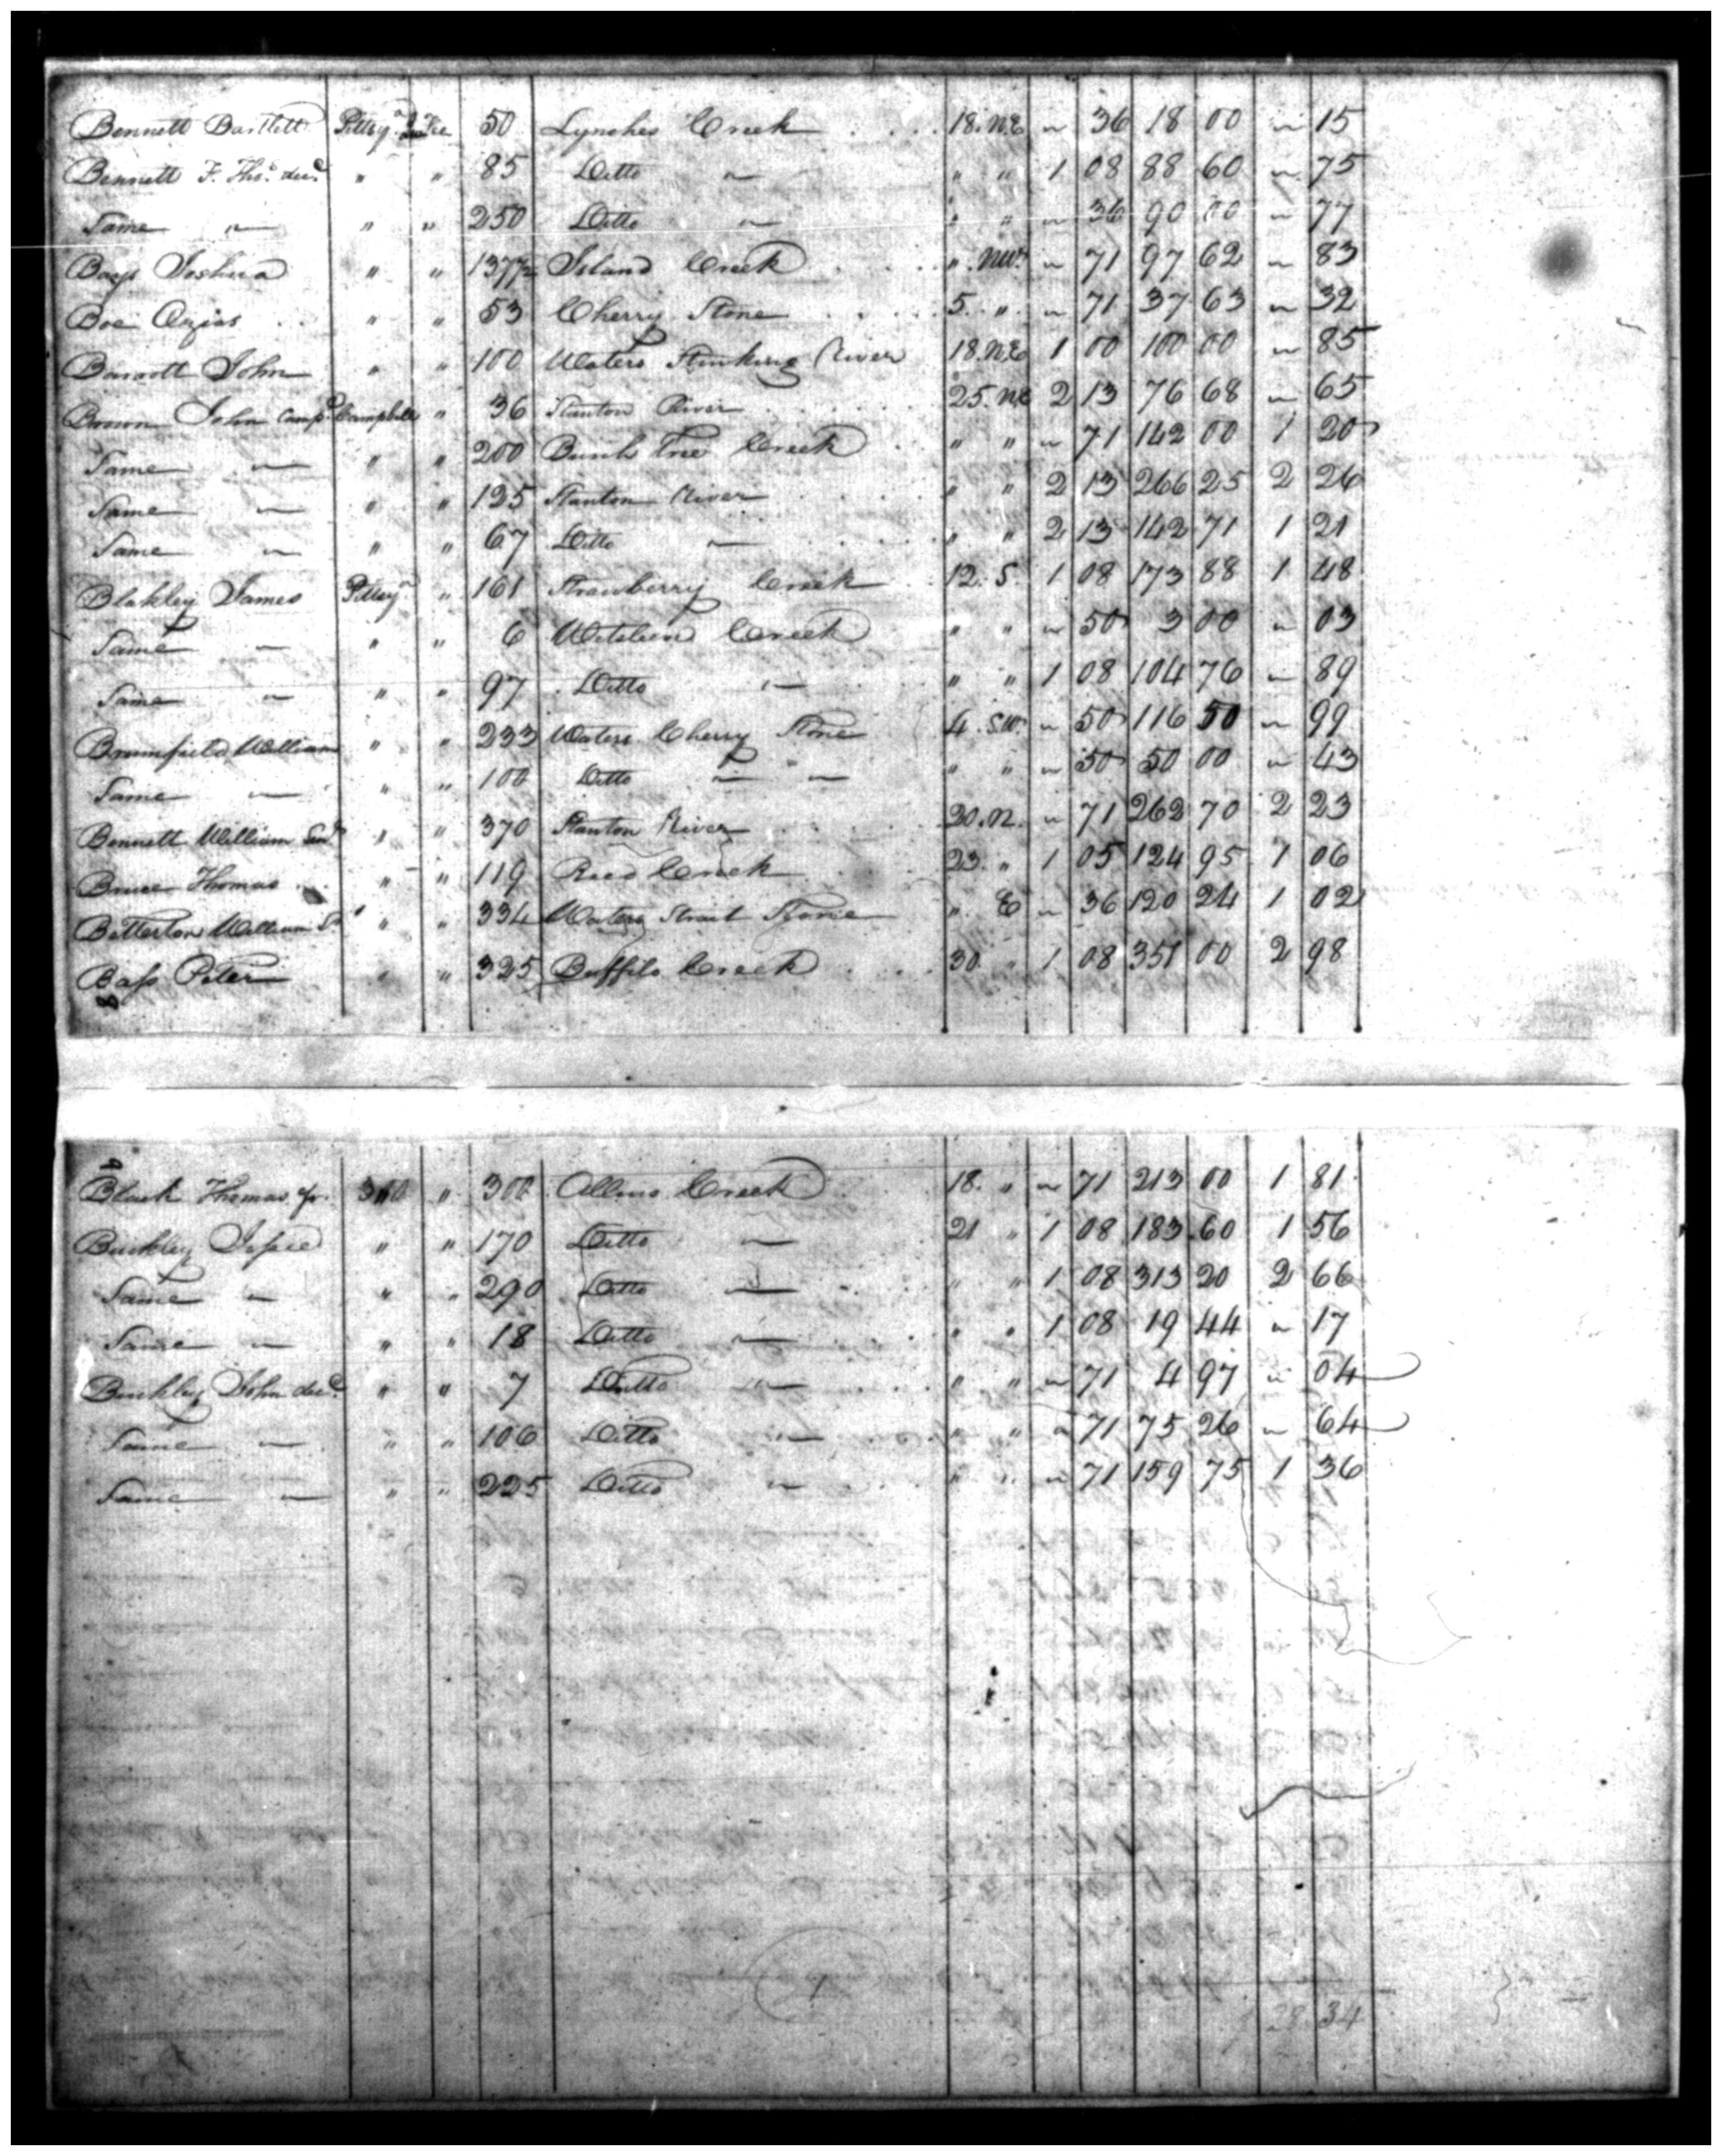 Bennett Bartlett Pittsy.a Fee 50 Lynches Creek 18. N.E " 36 18 00 " 15
Bennett F. Thos. decd. " " 85 Ditto " " " 1 08 88 60 " 75
Same " " " 250 Ditto " " " " 36 90 00 " 77
Bays Joshua " " 137½ Island Creek " NW. " 71 97 62 " 83
Boe Ozias " " 53 Cherry Stone 5. " " 71 37 63 " 32
Barrott John " " 100 Waters Stinking River 18. N.E 1 00 100 00 " 85
Brown John Camp. Campbell " 36 Stanton River 25. N.E 2 13 76 68 " 65
Same " " " 200 Creek " " " 71 142 00 1 20
Same " " " 125 Stanton River " " 2 13 266 25 2 26
Same " " " 67 Ditto " " " 2 13 142 71 1 21
Blakley James Pittsy.a " 161 Strawberry Creek 12. S. 1 08 173 88 1 48
Same " " " 6 Creek " " " 50 3 00 " 03
Same " " " 97 Ditto " " " 1 08 104 76 " 89
Brumfield William " " 233 Waters Cherry Stone 4. S.W. " 50 116 50 " 99
Same " " " 100 Ditto " " " " " 50 50 00 " 43
Bennett William Senr. " " 370 Stanton River 30. N. " 71 262 70 2 23
Bruce Thomas " " 119 Reed Creek 23. " 1 05 124 95 1 06
Betterton William Sr. " " 334 Waters Strait Stone " E " 36 120 24 1 02
Bass Peter " " 325 Buffilo Creek 30 " 1 08 351 00 2 98
Black Thomas jr. " 300 Allins Creek 18. " " 71 213 00 1 81
Buckley Jessee " " 170 Ditto " 21 " 1 08 183 60 1 56
Same " " " 290 Ditto " " " 1 08 313 20 2 66
Same " " " 18 Ditto " " " 1 08 19 44 " 17
Buckley John decd. " " 7 Ditto " " " " 71 4 97 " 04
Same " " " 106 Ditto " " " " 71 75 26 " 64
Same " " " 225 Ditto " " " " 71 159 75 1 36
28 34